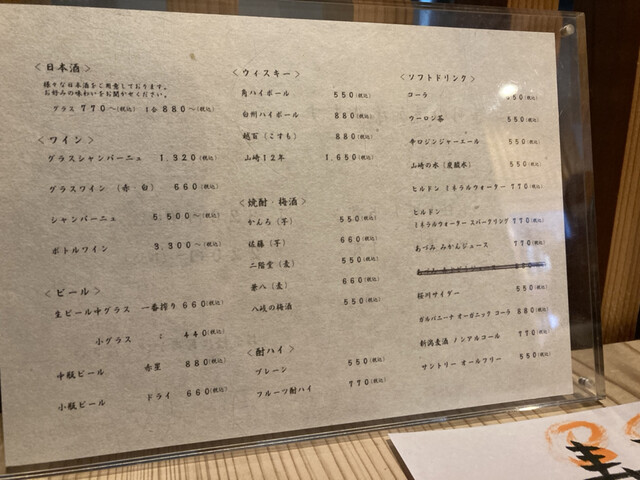 ＜日本酒＞
様々な日本酒をご用意しております。
お好みの味わいをお聞かせください。
グラス 770～(税込) 1合 880～(税込)
＜ワイン＞
グラスシャンパーニュ 1,320(税込)
グラスワイン (赤・白) 660(税込)
シャンパーニュ 5,500～(税込)
ボトルワイン 3,300～(税込)
＜ビール＞
生ビール中グラス 一番搾り 660(税込)
小グラス : 440(税込)
中瓶ビール 赤星 880(税込)
小瓶ビール ドライ 660(税込)
＜ウィスキー＞
角ハイボール 550(税込)
白州ハイボール 880(税込)
越百 (こすも) 880(税込)
山崎12年 1,650(税込)
＜焼酎・梅酒＞
かんろ (芋) 550(税込)
佐藤 (芋) 660(税込)
二階堂 (麦) 550(税込)
兼八 (麦) 660(税込)
八岐の梅酒 550(税込)
＜酎ハイ＞
プレーン 550(税込)
フルーツ酎ハイ 770(税込)
＜ソフトドリンク＞
コーラ 550(税込)
ウーロン茶 550(税込)
辛口ジンジャーエール 550(税込)
山崎の水 (炭酸水) 550(税込)
ヒルドン ミネラルウォーター 770(税込)
ヒルドン
ミネラルウォーター スパークリング 770(税込)
あづみ みかんジュース 770(税込)
桜川サイダー 550(税込)
ガルバニーナ オーガニック コーラ 880(税込)
新潟麦酒 ノンアルコール 770(税込)
サントリー オールフリー 550(税込)